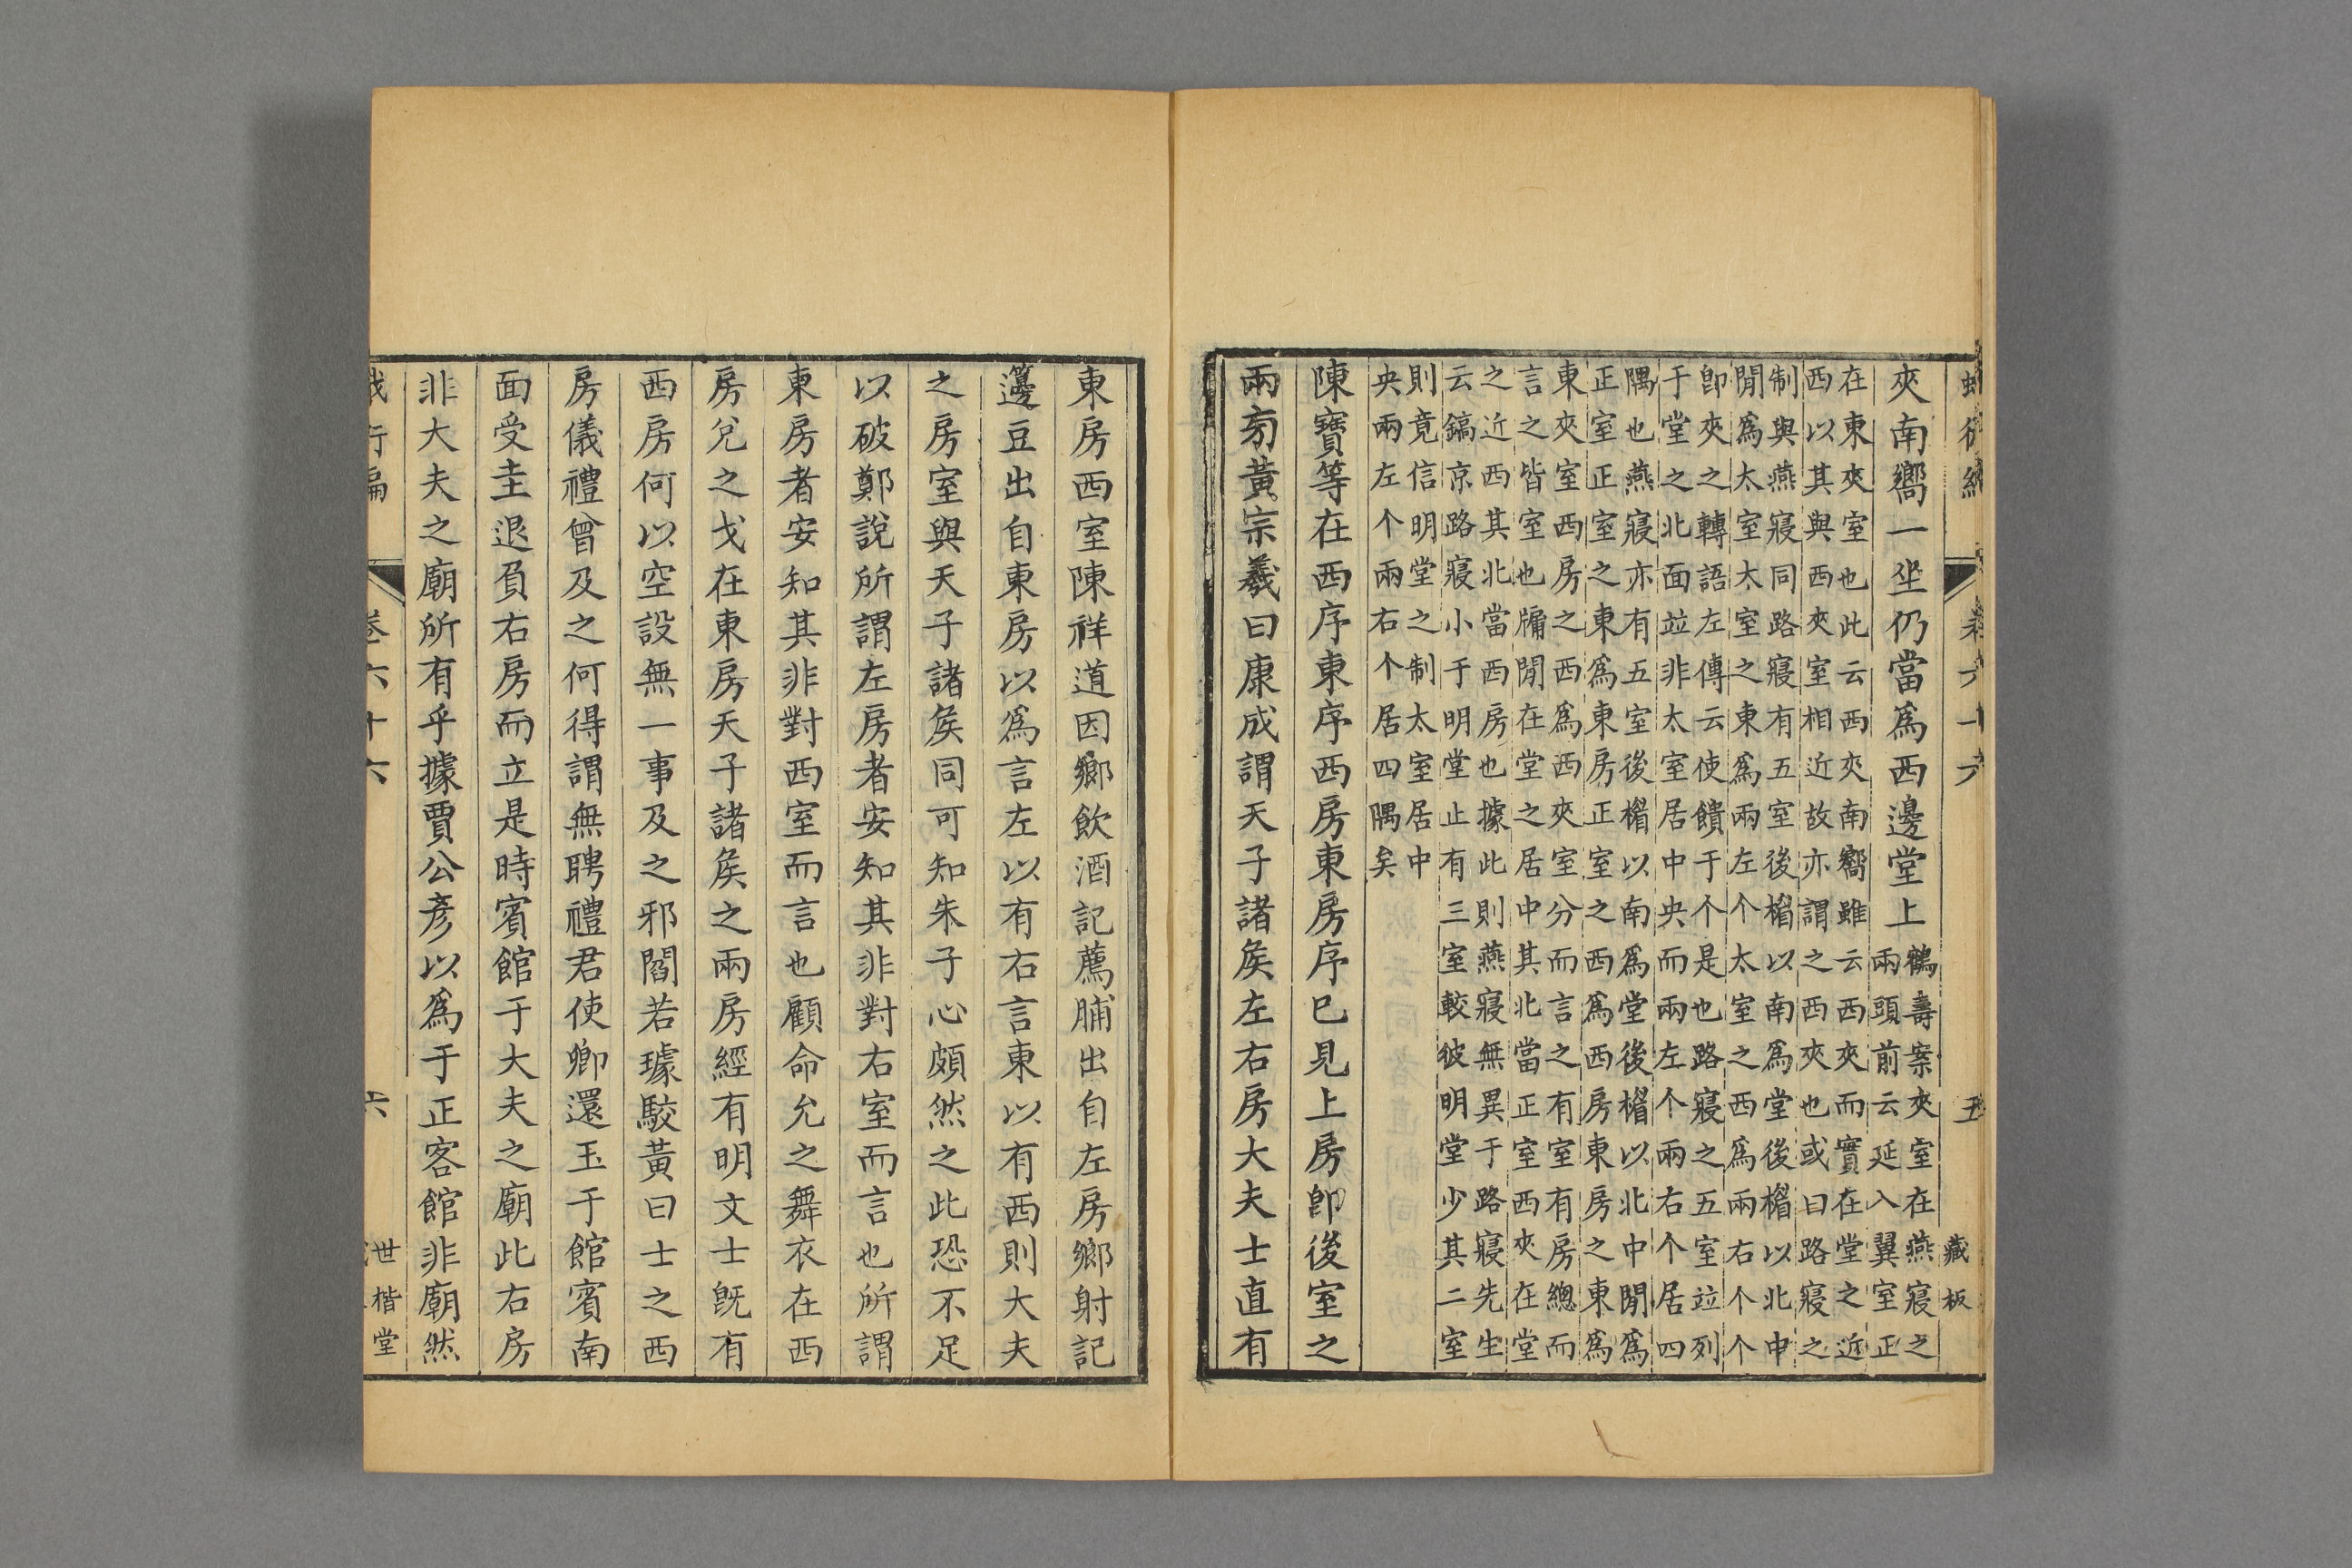 藏板
夾南嚮一坐仍當爲西邊堂上
鶴壽案夾室在燕寢之
兩頭前云延入翼室正
在東夾室也此云西夾南嚮雖云西夾而實在堂之近
西以其與西夾室相近故亦謂之西夾也或曰路寢之
制與燕寢同路寢有五室後楣以南爲堂後楣以北中
閒爲太室太室之東爲兩左个太室之西爲兩右个个
卽夾之轉語左傳云使饋于个是也路寢之五室竝列
于堂之北面竝非太室居中央而兩左个兩右个居四
隅也燕寢亦有五室後楣以南爲堂後楣以北中閒爲
正室正室之東爲東房正室之西爲西房東房之東爲
東夾室西房之西爲西夾室分而言之有室有房總而
言之皆室也牖閒在堂之居中其北當正室西夾在堂
之近西其北當西房也據此則燕寢無異于路寢先生
云鎬京路寢小于明堂止有三室較彼明堂少其二室
則竟信明堂之制太室居中
央兩左个兩右个居四隅矣
陳寶等在西序東序西房東房序已見上房卽後室之
兩旁黃宗羲曰康成謂天子諸矦左右房大夫士直有
東房西室陳祥道因鄉飲酒記薦脯出自左房鄉射記
籩豆出自東房以爲言左以有右言東以有西則大夫
之房室與天子諸矦同可知朱子心頗然之此恐不足
以破鄭說所謂左房者安知其非對右室而言也所謂
東房者安知其非對西室而言也顧命允之舞衣在西
房兊之戈在東房天子諸矦之兩房經有明文士旣有
西房何以空設無一事及之邪閻若璩駮黃曰士之西
房儀禮曾及之何得謂無聘禮君使卿還玉于館賓南
面受圭退負右房而立是時賓館于大夫之廟此右房
非大夫之廟所有乎據賈公彥以爲于正客館非廟然
卷六十六
六
世楷堂